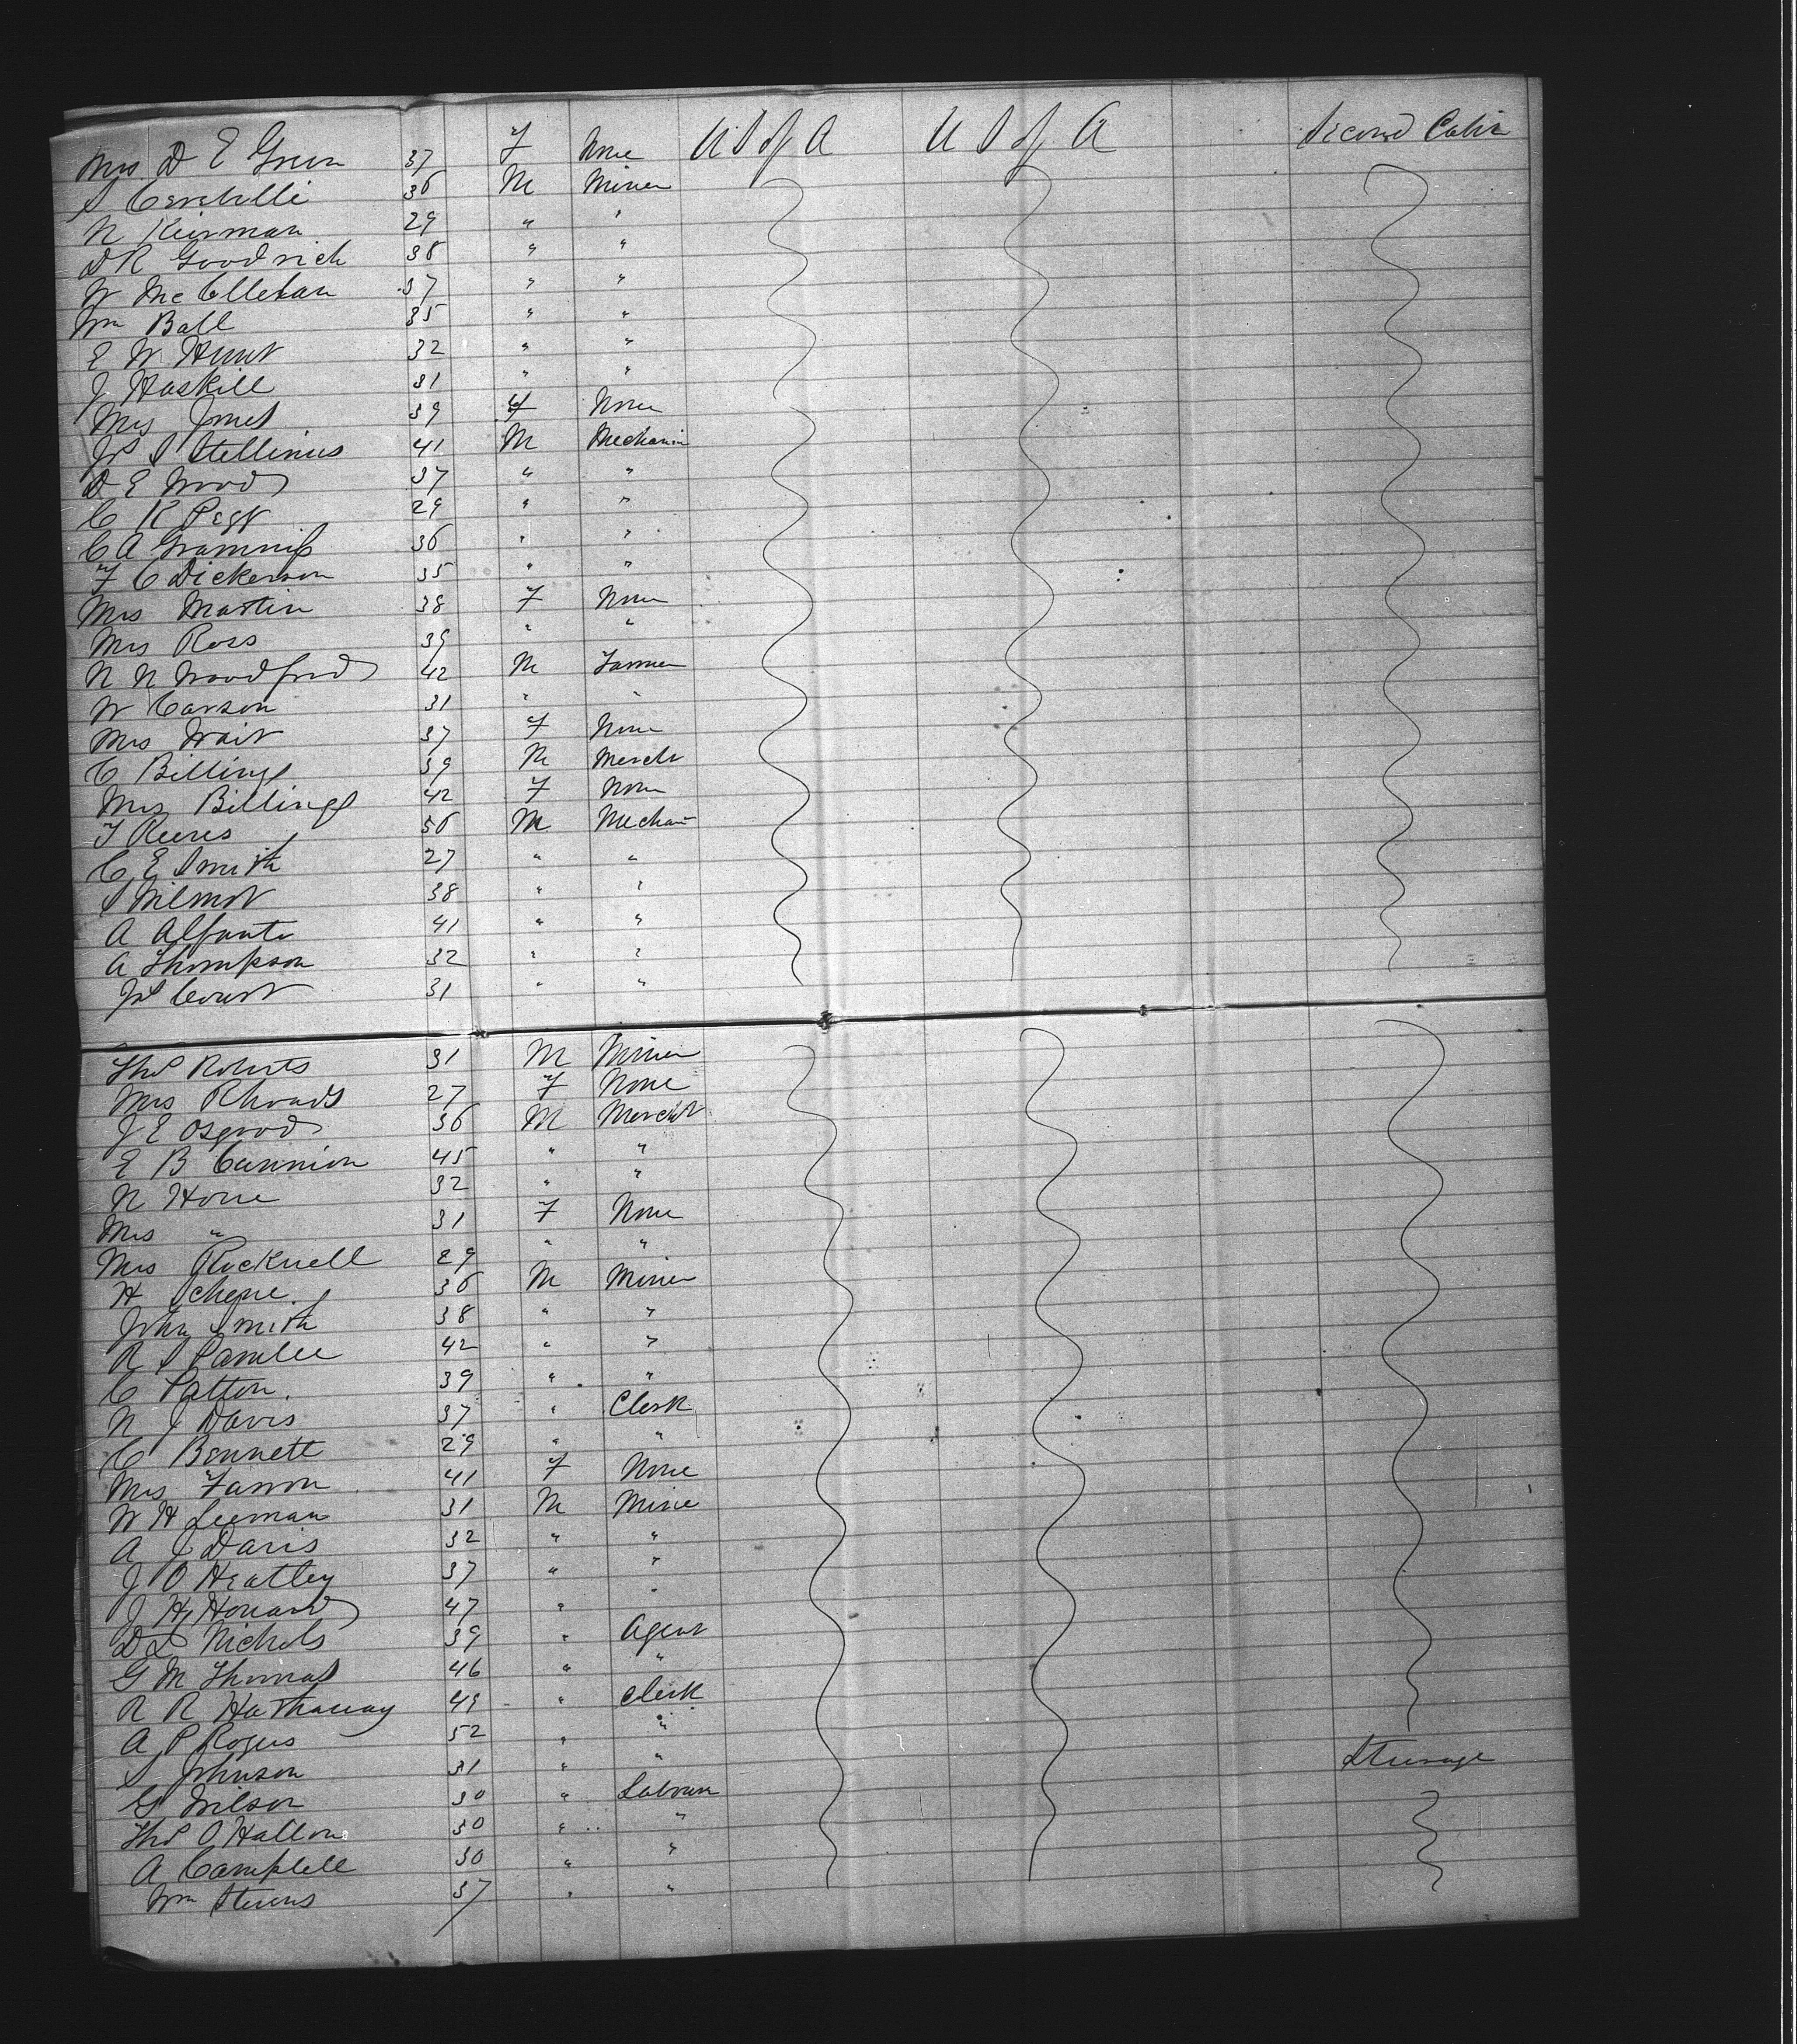 Mrs D E Green 37 F None U S of A U S of A Second Cabin
S 36 M Miner
N Kiernan 29 " "
D R Goodrich 38 " "
W McClellan 37 " "
Wm Ball 35 " "
E W Hunt 32 " "
J Haskill 31 " "
Mrs Jones 39 F None
Jas S Stellinus 41 M Mechanic
D E Wood 37 " "
C R Pest 29 " "
C A Grammis 36 " "
F C Dickerson 35 " "
Mrs Martin 38 F None
Mrs Ross 39 " "
N N Woodford 42 M Farmer
W Carson 31 " "
Mrs Wait 37 F None
C Billings 39 M Mercht
Mrs Billings 42 F None
T Reeves 56 M Mechan
C E Smith 27 " "
S Wilmot 38 " "
A Alfonte 41 " "
A Thompson 32 " "
Jas Court 31 " "
Thos Roberts 31 M Miner
Mrs Rhoads 27 F None
J E Osgood 36 M Mercht
E B Cannion 45 " "
N Horne 32 " "
Mrs " 31 F None
Mrs Rocknell 29 " "
H Schene 36 M Miner
John Smith 38 " "
R S Parmlee 42 " "
C Patton. 39 " "
N J Davis 37 " Clerk
C Bennett 29 " "
Mrs Farron 41 F None
W H Leeman 31 M Mine
A J Davis 32 " "
J O Heatley 37 " "
J H Howard 47 " "
D L Nichols 39 " Agent
G M Thomas 46 " "
R R Hathaway 49 " Clerk
A P Rogers 52 " "
S Johnson 31 " " Steerage
G Wilson 30 " Laborer
Thos O Hallon 30 " "
A Campbell 30 " "
Wm Stevens 37 " "